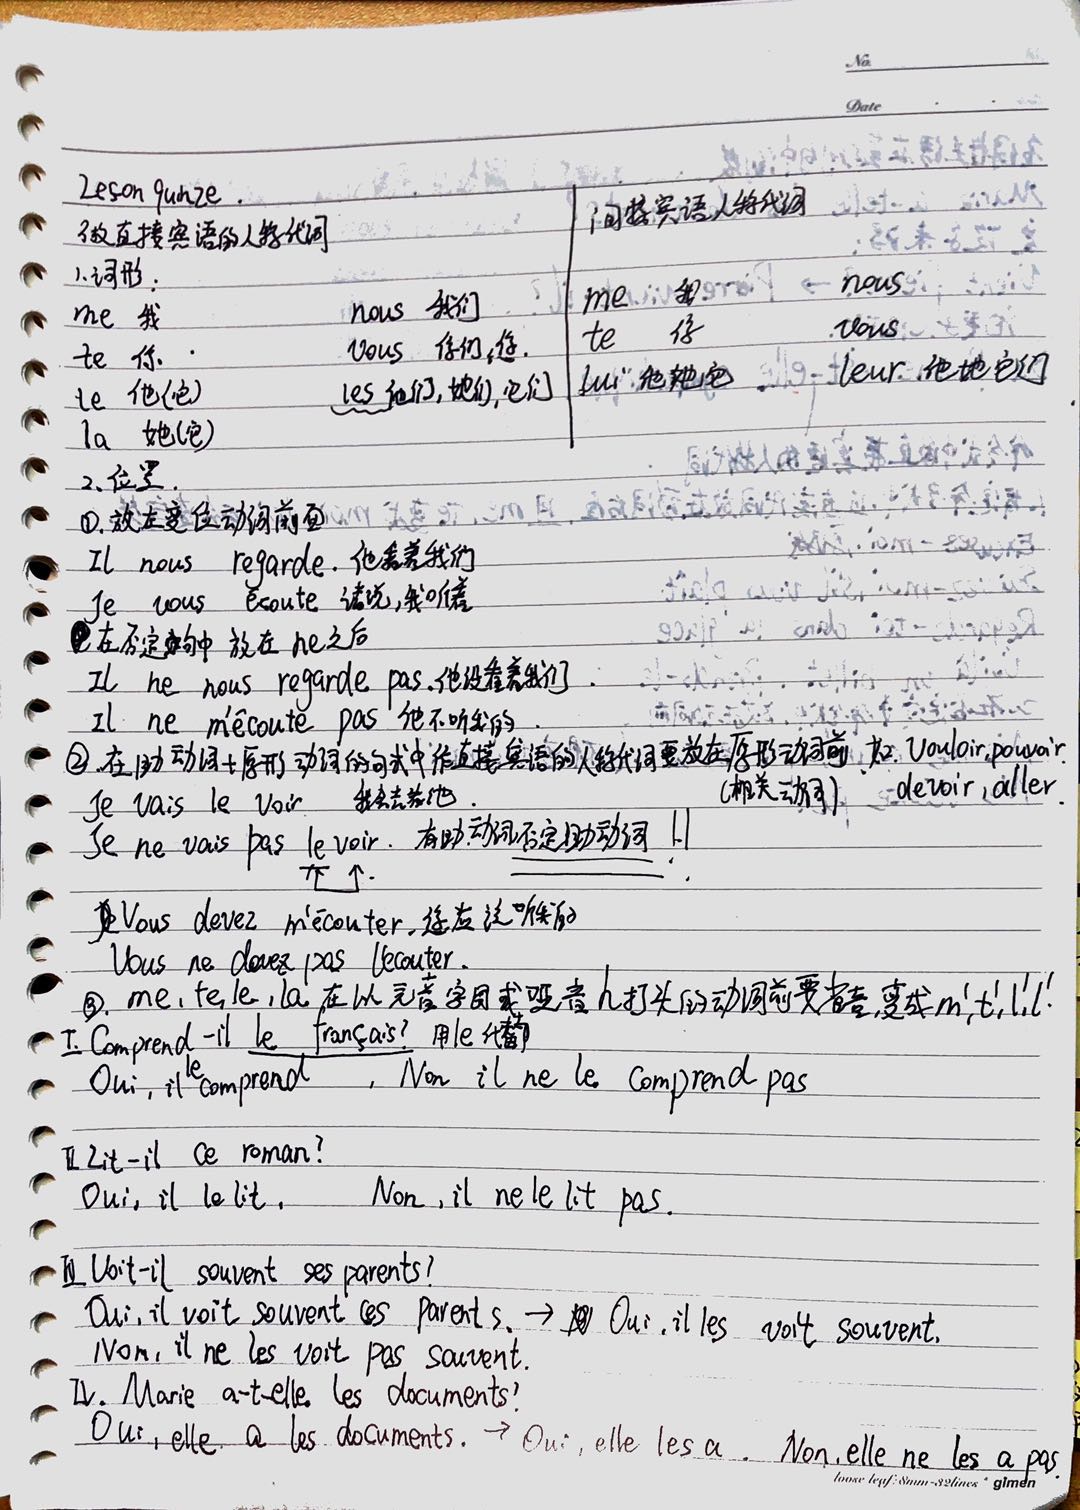 No.
Date
Leson quinze.
做直接宾语的人称代词
1.词形:
me 我 nous 我们
te 你. vous 你们,您.
le 他(它) les 他们,她们,它们
la 她(它)
间接宾语人称代词
me 我 nous
te 你 vous
lui 他她它 leur 他她它们
2.位置.
①.放在变位动词前面
Il nous regarde.他看着我们
Je vous écoute 请说,我听着
在否定句中 放在ne之后
Il ne nous regarde pas.他没看着我们.
Il ne m'écoute pas 他不听我的.
②.在助动词+原形动词的句式中作直接宾语的人称代词要放在原形动词前 如 vouloir,pouvoir,
(相关动词) devoir,aller.
Je vais le voir 我去看他.
Je ne vais pas le voir. 有助动词否定助动词!!
Vous devez m'écouter.您应该听我的
Vous ne devez pas l'écouter.
③. me,te,le,la 在以元音字母或哑音h打头的动词前要省音,变成m',t',l',l'
I. Comprend-il le français? 用le代替
Oui, il le comprend , Non il ne le comprend pas
II Lit-il ce roman?
Oui, il le lit. Non, il ne le lit pas.
III Voit-il souvent ses parents?
Oui, il voit souvent ces parents. → Oui, il les voit souvent.
Non, il ne les voit pas souvent.
IV. Marie a-t-elle les documents?
Oui, elle a les documents. → Oui, elle les a. Non, elle ne les a pas.
loose leaf:8mm-32lines * gimen